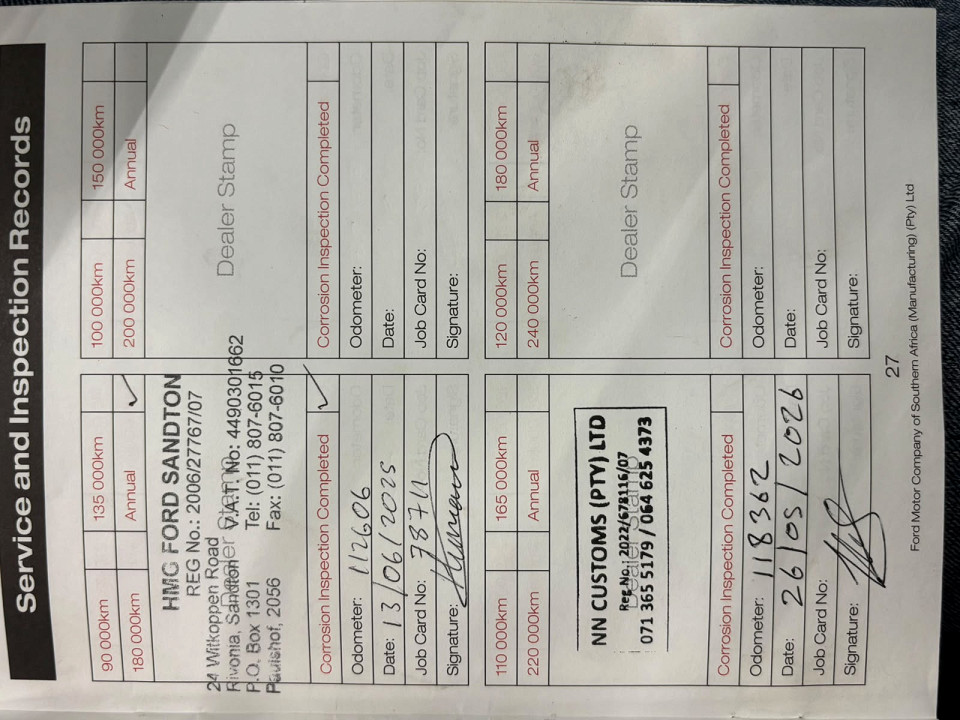 Service and Inspection Records
90 000km 135 000km
180 000km Annual ✓
Dealer Stamp
HMC FORD SANDTON
REG No.: 2006/27767/07
24 Witkoppen Road
Rivonia, Sandton V.A.T. No: 4490301662
P.O. Box 1301 Tel: (011) 807-6015
Paulshof, 2056 Fax: (011) 807-6010
Corrosion Inspection Completed ✓
Odometer: 112606
Date: 13/06/2025
Job Card No:
Signature:
100 000km 150 000km
200 000km Annual
Dealer Stamp
Corrosion Inspection Completed
Odometer:
Date:
Job Card No:
Signature:
110 000km 165 000km
220 000km Annual
Dealer Stamp
NN CUSTOMS (PTY) LTD
Reg.No.: 2022/678116/07
071 365 5179 / 064 625 4373
Corrosion Inspection Completed
Odometer: 118362
Date: 26/05/2026
Job Card No:
Signature:
120 000km 180 000km
240 000km Annual
Dealer Stamp
Corrosion Inspection Completed
Odometer:
Date:
Job Card No:
Signature:
27
Ford Motor Company of Southern Africa (Manufacturing) (Pty) Ltd